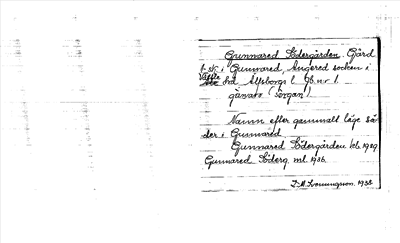 Gunnared Södergården. Gård
i Gunnared, Angered socken i
Vättle hd Älfsborgs l. Jb. nr 1.
gården (sörgan)
Namn efter gammalt läge sö-
der i Gunnared
Gunnared Södergården kb. 1929
Gunnared Söderg. ml. 1936.
1938